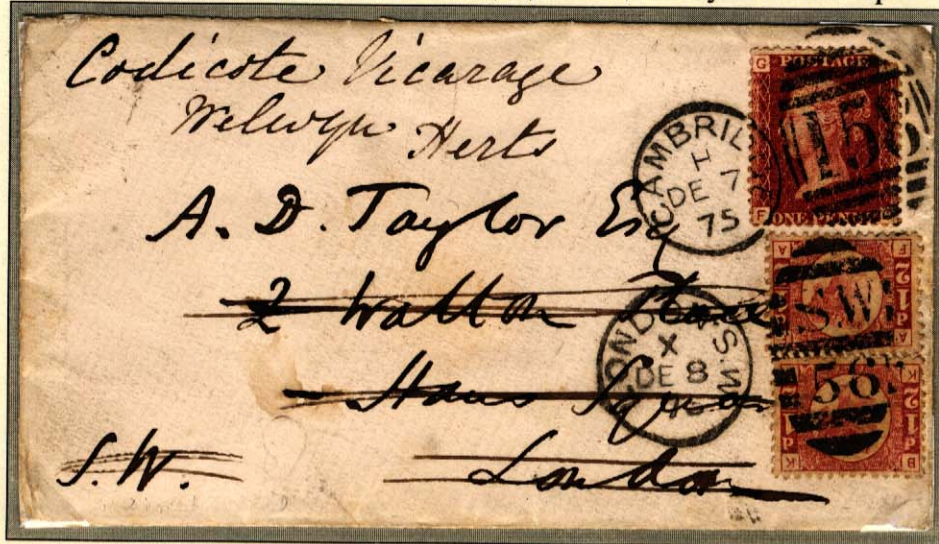 Codicote Vicarage
Welwyn Herts
A. D. Taylor Esq
2 Walton Place
Hans Square
S.W. London
CAMBRIDGE
H
DE 7
75
LONDON S.W
X
DE 8
G POSTAGE
158
F ONE PENNY
SW
58